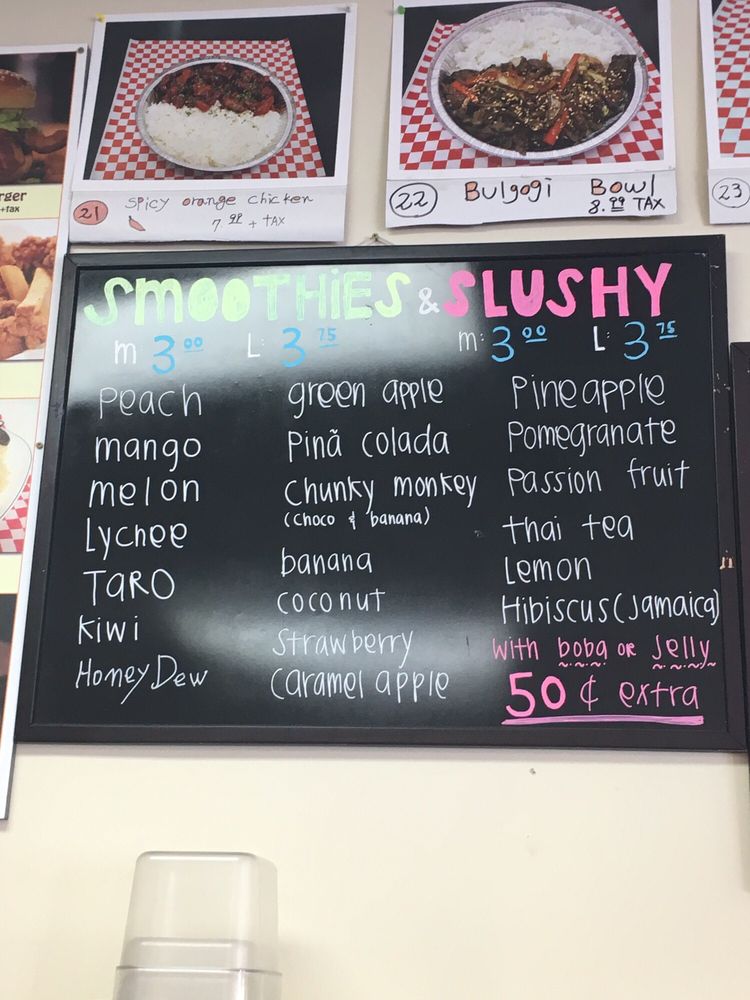 rger
+tax
21 spicy orange chicken
7.99 + TAX
22 Bulgogi Bowl
8.99 TAX
23
SMOOTHIES & SLUSHY
m 3.00 L: 3.75 m: 3.00 L: 3.75
Peach
mango
melon
Lychee
TARO
Kiwi
Honey Dew
green apple
Pinã colada
Chunky monkey
(choco & banana)
banana
coconut
Strawberry
Caramel apple
Pineapple
Pomegranate
Passion fruit
thai tea
Lemon
Hibiscus (Jamaica)
with boba or Jelly
50 ¢ extra